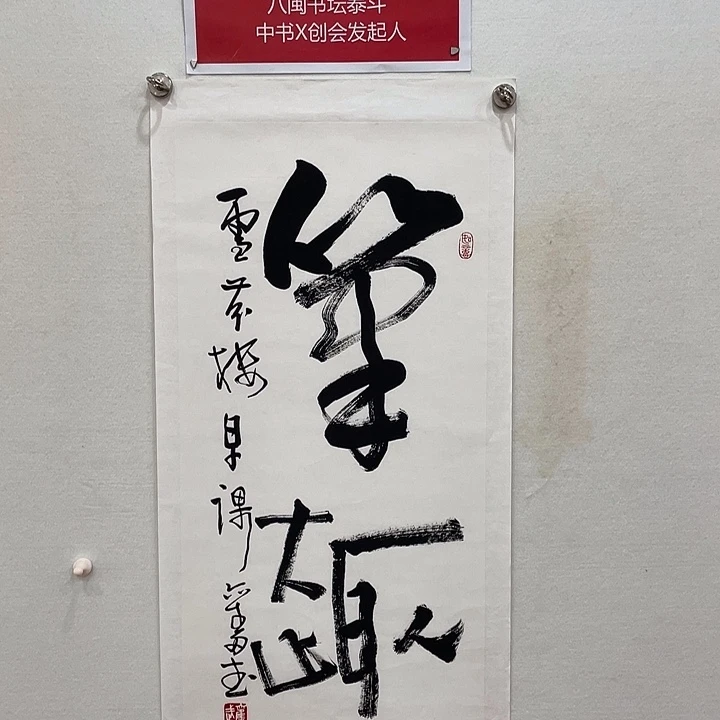 八闽书坛泰斗
中书X创会发起人
笔趣
雪芬楼早课